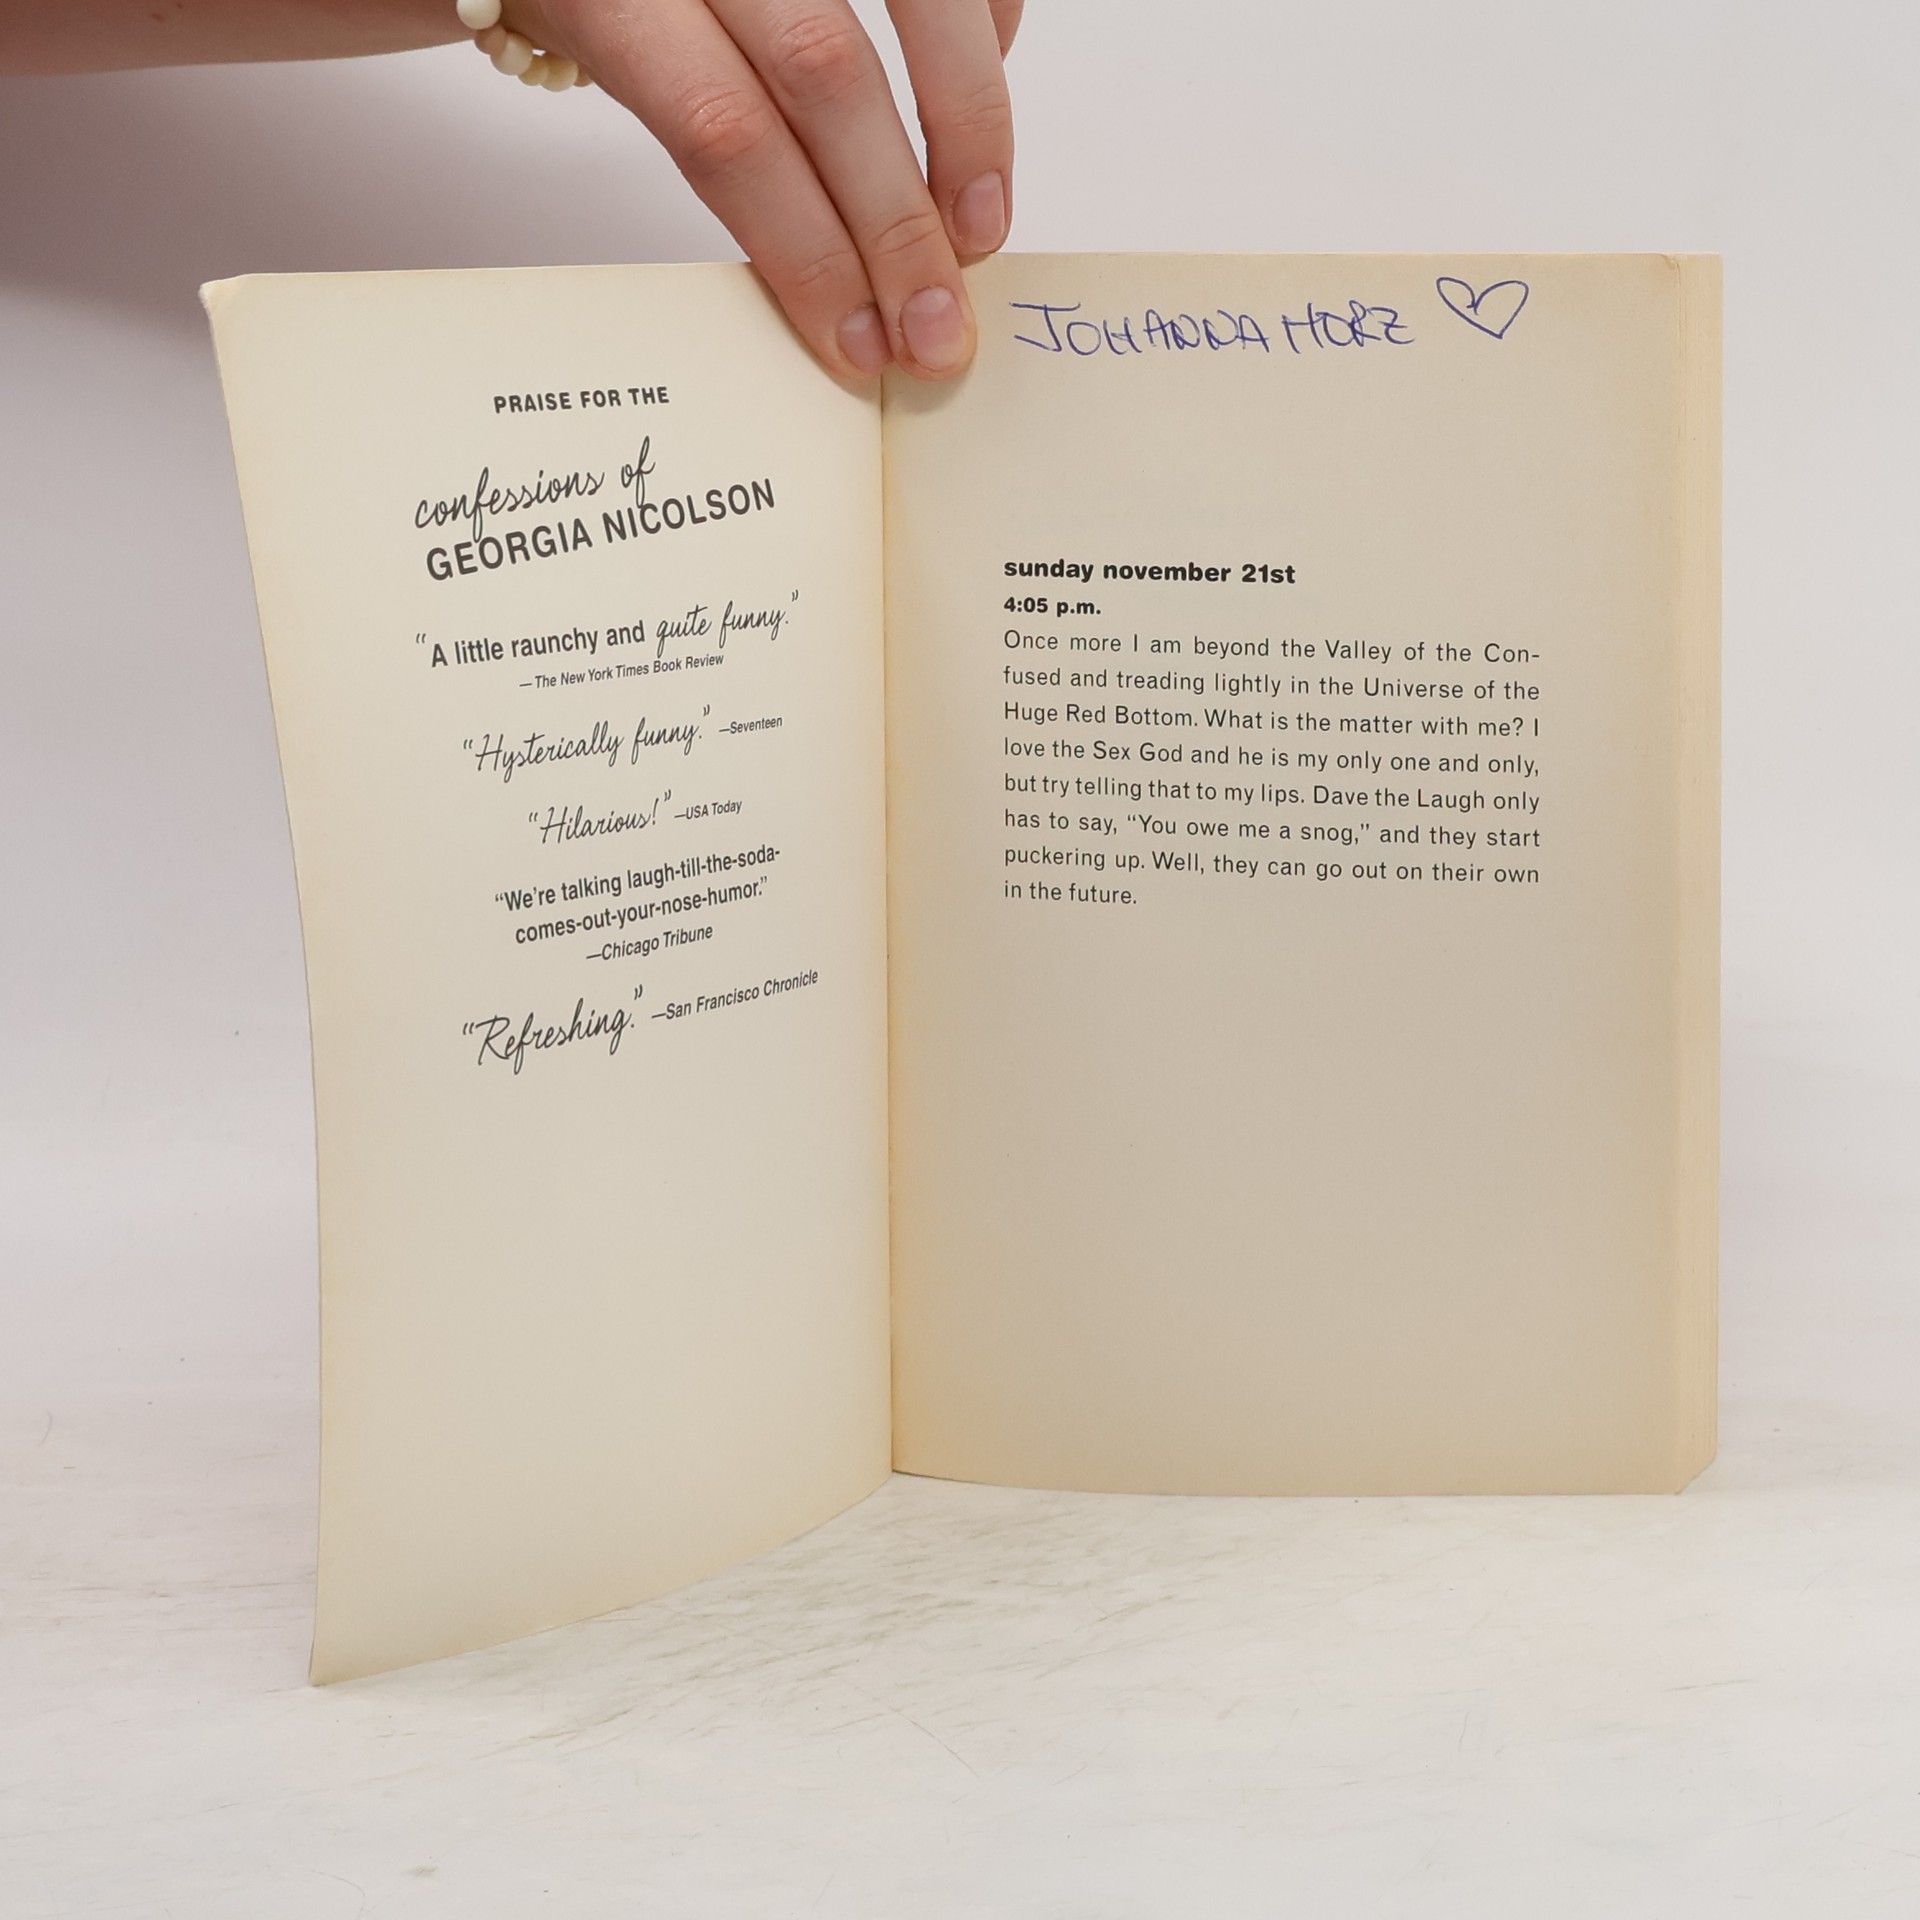 PRAISE FOR THE
confessions of
GEORGIA NICOLSON
“A little raunchy and quite funny.”
—The New York Times Book Review
“Hysterically funny.” —Seventeen
“Hilarious!” —USA Today
“We’re talking laugh-till-the-soda-
comes-out-your-nose-humor.”
—Chicago Tribune
“Refreshing.” —San Francisco Chronicle
JOHANNA MORZ
sunday november 21st
4:05 p.m.
Once more I am beyond the Valley of the Con-
fused and treading lightly in the Universe of the
Huge Red Bottom. What is the matter with me? I
love the Sex God and he is my only one and only,
but try telling that to my lips. Dave the Laugh only
has to say, “You owe me a snog,” and they start
puckering up. Well, they can go out on their own
in the future.